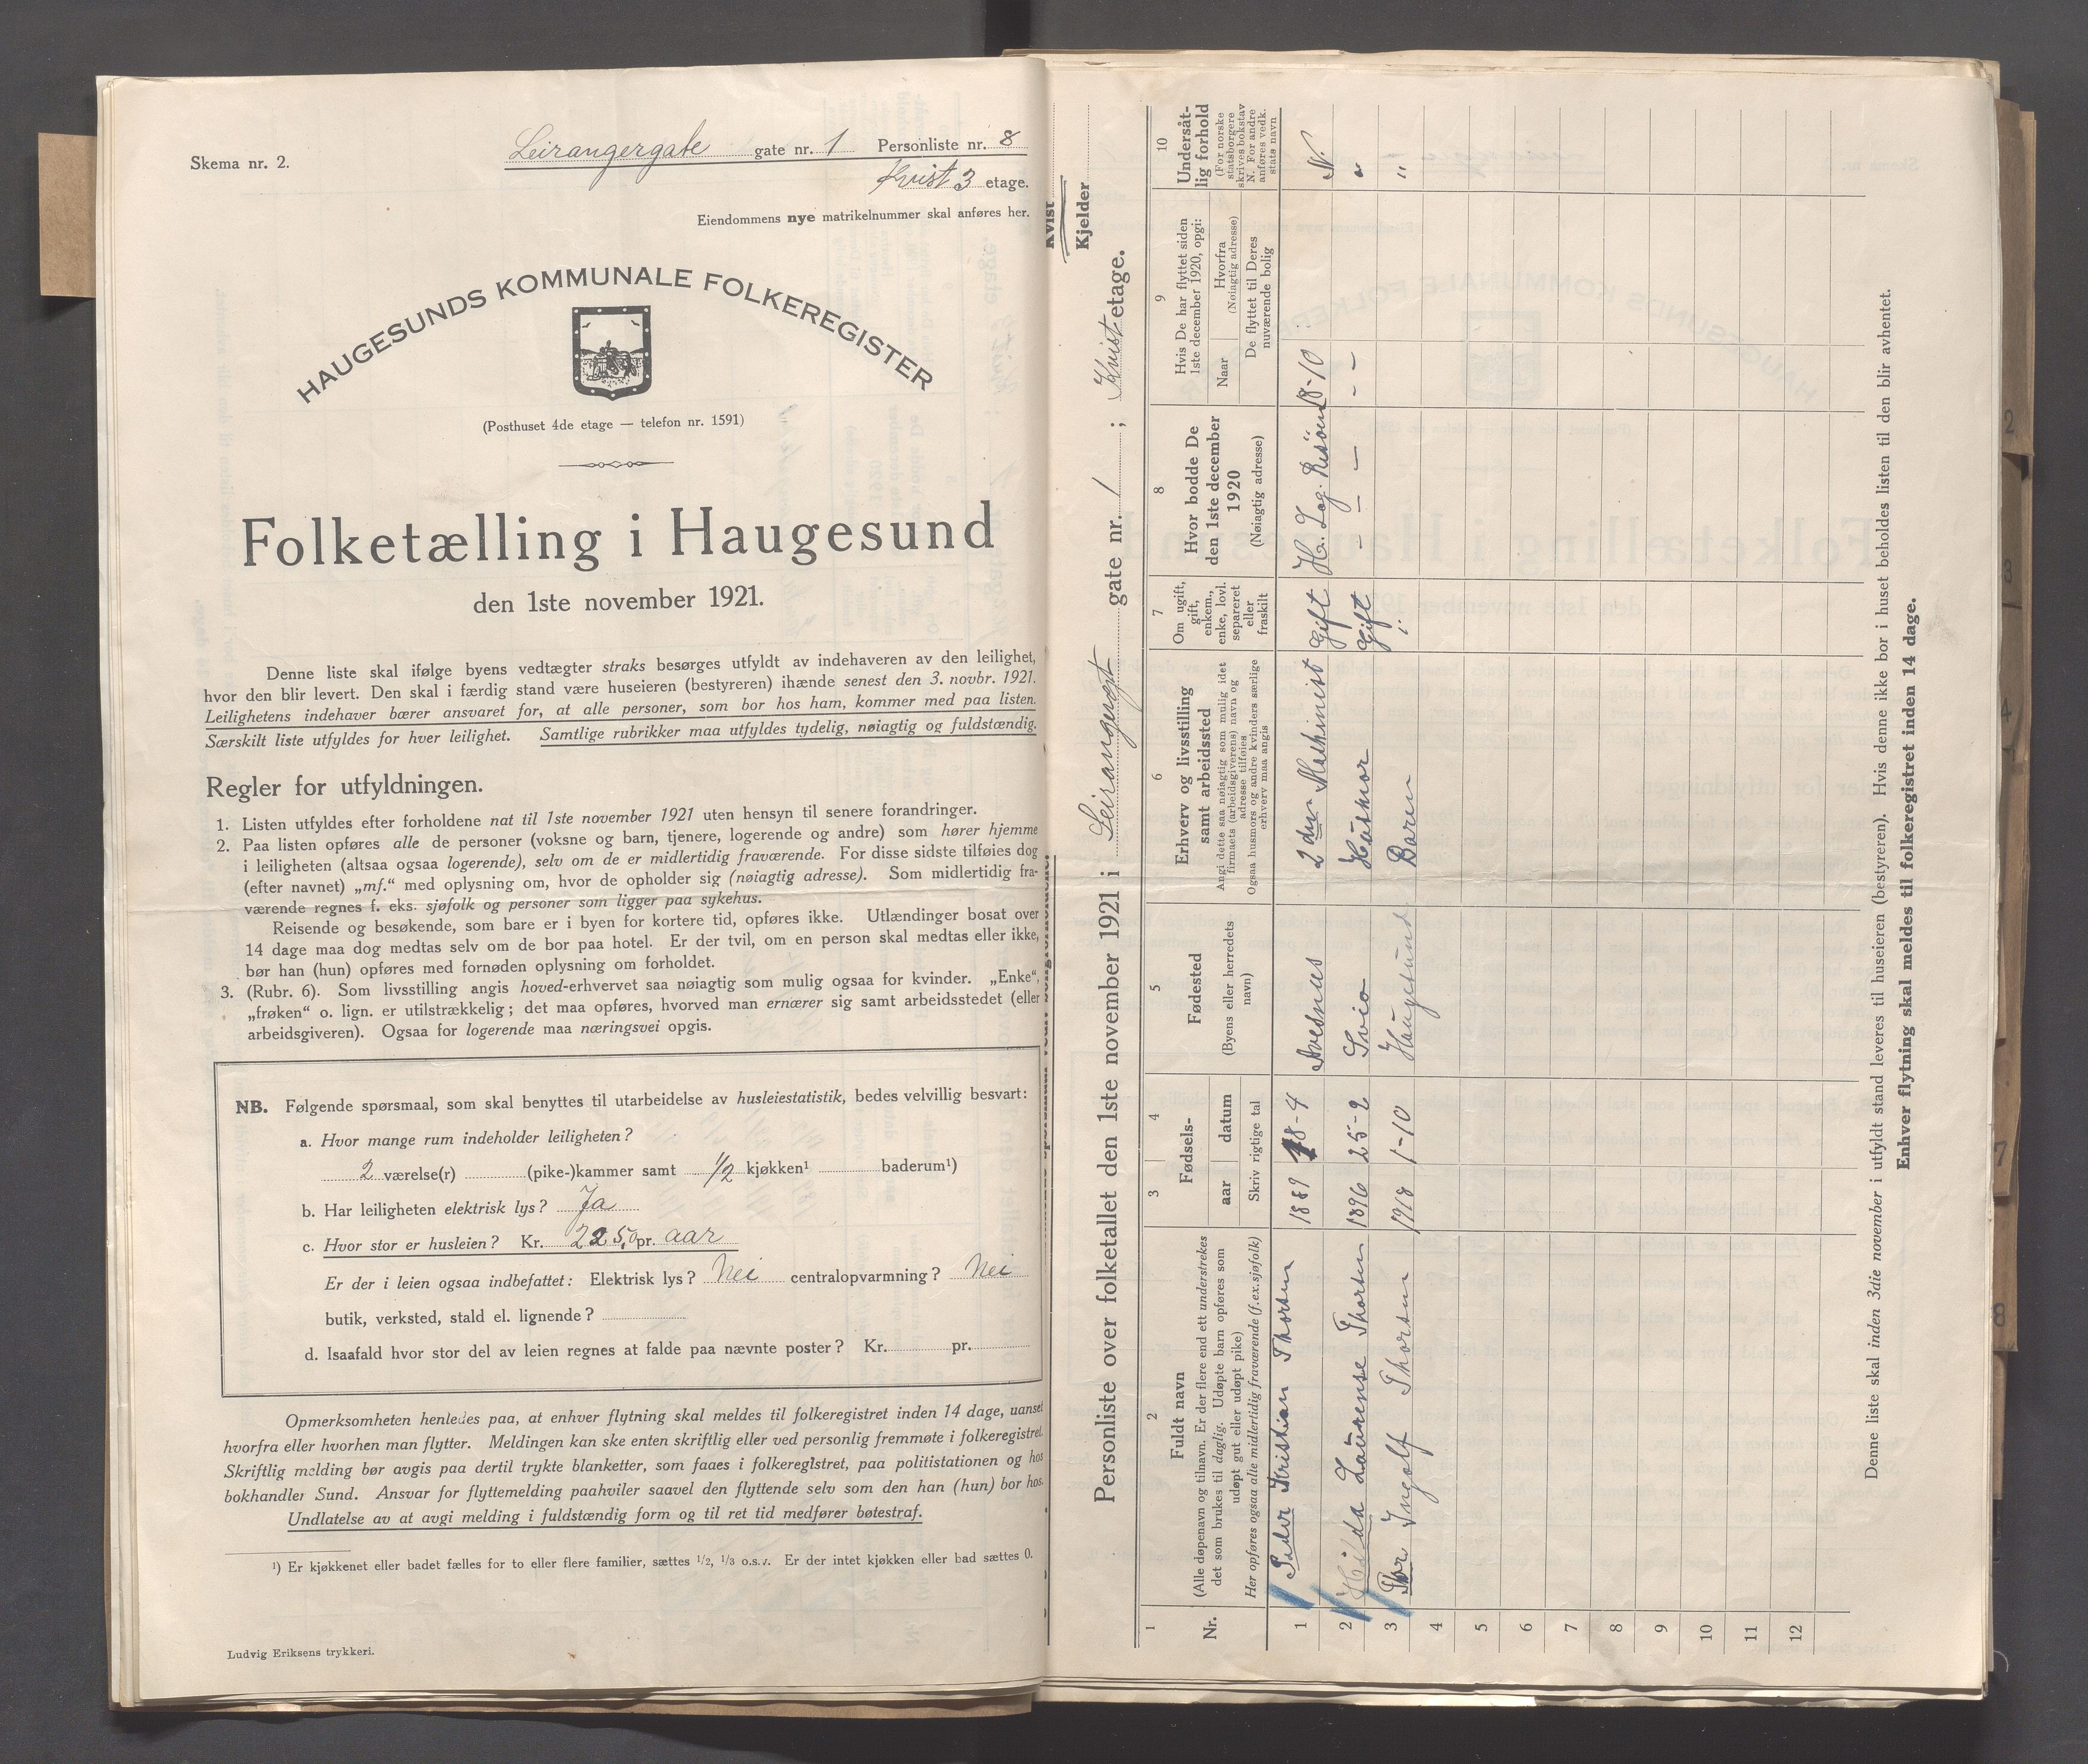 Skema nr. 2.
Leirangergate gate nr. 1 Personliste nr. 8
Kvist 3 etage.
Eiendommens nye matrikelnummer skal anføres her.
HAUGESUNDS KOMMUNALE FOLKEREGISTER
(Posthuset 4de etage — telefon nr. 1591)
Folketælling i Haugesund
den 1ste november 1921.
Denne liste skal ifølge byens vedtægter straks besørges utfyldt av indehaveren av den leilighet,
hvor den blir levert. Den skal i færdig stand være huseieren (bestyreren) ihænde senest den 3. novbr. 1921.
Leilighetens indehaver bærer ansvaret for, at alle personer, som bor hos ham, kommer med paa listen.
Særskilt liste utfyldes for hver leilighet. Samtlige rubrikker maa utfyldes tydelig, nøiagtig og fuldstændig.
Regler for utfyldningen.
1. Listen utfyldes efter forholdene nat til 1ste november 1921 uten hensyn til senere forandringer.
2. Paa listen opføres alle de personer (voksne og barn, tjenere, logerende og andre) som hører hjemme
i leiligheten (altsaa ogsaa logerende), selv om de er midlertidig fraværende. For disse sidste tilføies dog
(efter navnet) „mf.“ med oplysning om, hvor de opholder sig (nøiagtig adresse). Som midlertidig fra-
værende regnes f. eks. sjøfolk og personer som ligger paa sykehus.
Reisende og besøkende, som bare er i byen for kortere tid, opføres ikke. Utlændinger bosat over
14 dage maa dog medtas selv om de bor paa hotel. Er der tvil, om en person skal medtas eller ikke,
bør han (hun) opføres med fornøden oplysning om forholdet.
3. (Rubr. 6). Som livsstilling angis hoved-erhvervet saa nøiagtig som mulig ogsaa for kvinder. „Enke“,
„frøken“ o. lign. er utilstrækkelig; det maa opføres, hvorved man ernærer sig samt arbeidsstedet (eller
arbeidsgiveren). Ogsaa for logerende maa næringsvei opgis.
NB. Følgende spørsmaal, som skal benyttes til utarbeidelse av husleiestatistik, bedes velvillig besvart:
a. Hvor mange rum indeholder leiligheten?
2 værelse(r) (pike-)kammer samt 1/2 kjøkken¹ baderum¹)
b. Har leiligheten elektrisk lys? Ja
c. Hvor stor er husleien? Kr. 225,0 pr. aar
Er der i leien ogsaa indbefattet: Elektrisk lys? Nei centralopvarmning? Nei
butik, verksted, stald el. lignende?
d. Isaafald hvor stor del av leien regnes at falde paa nævnte poster? Kr. pr.
Opmerksomheten henledes paa, at enhver flytning skal meldes til folkeregistret inden 14 dage, uanset
hvorfra eller hvorhen man flytter. Meldingen kan ske enten skriftlig eller ved personlig fremmøte i folkeregistret.
Skriftlig melding bør avgis paa dertil trykte blanketter, som faaes i folkereglstret, paa politistationen og hos
bokhandler Sund. Ansvar for flyttemelding paahviler saavel den flyttende selv som den han (hun) bor hos.
Undlatelse av at avgi melding i fuldstændig form og til ret tid medfører bøtestraf.
¹) Er kjøkkenet eller badet fælles for to eller flere familier, sættes 1/2, 1/3 o.s.v. Er der intet kjøkken eller bad sættes 0.
Ludvig Eriksens trykkeri.
Kvist
Kjelder
Personliste over folketallet den 1ste november 1921 i Leirangergt gate nr. 1 ; Kvist etage.
1 2 3 4 5 6 7 8 9 10
Nr.
Fuldt navn
(Alle døpenavn og tilnavn. Er der flere end ett understrekes
det som brukes til daglig. Udøpte barn opføres som
udøpt gut eller udøpt pike)
Her opføres ogsaa alle midlertidig fraværende (f.ex. sjøfolk)
Fødsels-
aar datum
Skriv rigtige tal
Fødested
(Byens eller herredets
navn)
Erhverv og livsstilling
samt arbeidssted
Angi dette saa nøiagtig som mulig idet
firmaets (arbeidsgiverens) navn og
adresse tilføies
Ogsaa husmors og andre kvinders særlige
erhverv maa angis
Om ugift,
gift,
enkem.,
enke, lovl.
separeret
eller
fraskilt
Hvor bodde De
den 1ste december
1920
(Nøiagtig adresse)
Hvis De har flyttet siden
1ste december 1920, opgi:
Naar
Hvorfra
(Nøiagtig adresse)
De flyttet til Deres
nuværende bolig
Undersåt-
lig forhold
(For norske
statsborgere
skrives bokstav
N. For andre
anføres vedk.
stats navn
1 Peder Kristian Thorsen 1889 18-4 Avesnus 2den Maskinist Gift H. Log. Risöen 18-10 N.
2 Hilda Laurense Thorsen 1896 25-2 Sveio Husmor Gift - - - - - "
3 Thor Ingolf Thorsen 1918 1-10 Haugesund Baren "
4
5
6
7
8
9
10
11
12
Denne liste skal inden 3die november i utfyldt stand leveres til huseieren (bestyreren). Hvis denne ikke bor i huset beholdes listen til den blir avhentet.
Enhver flytning skal meldes til folkeregistret inden 14 dage.